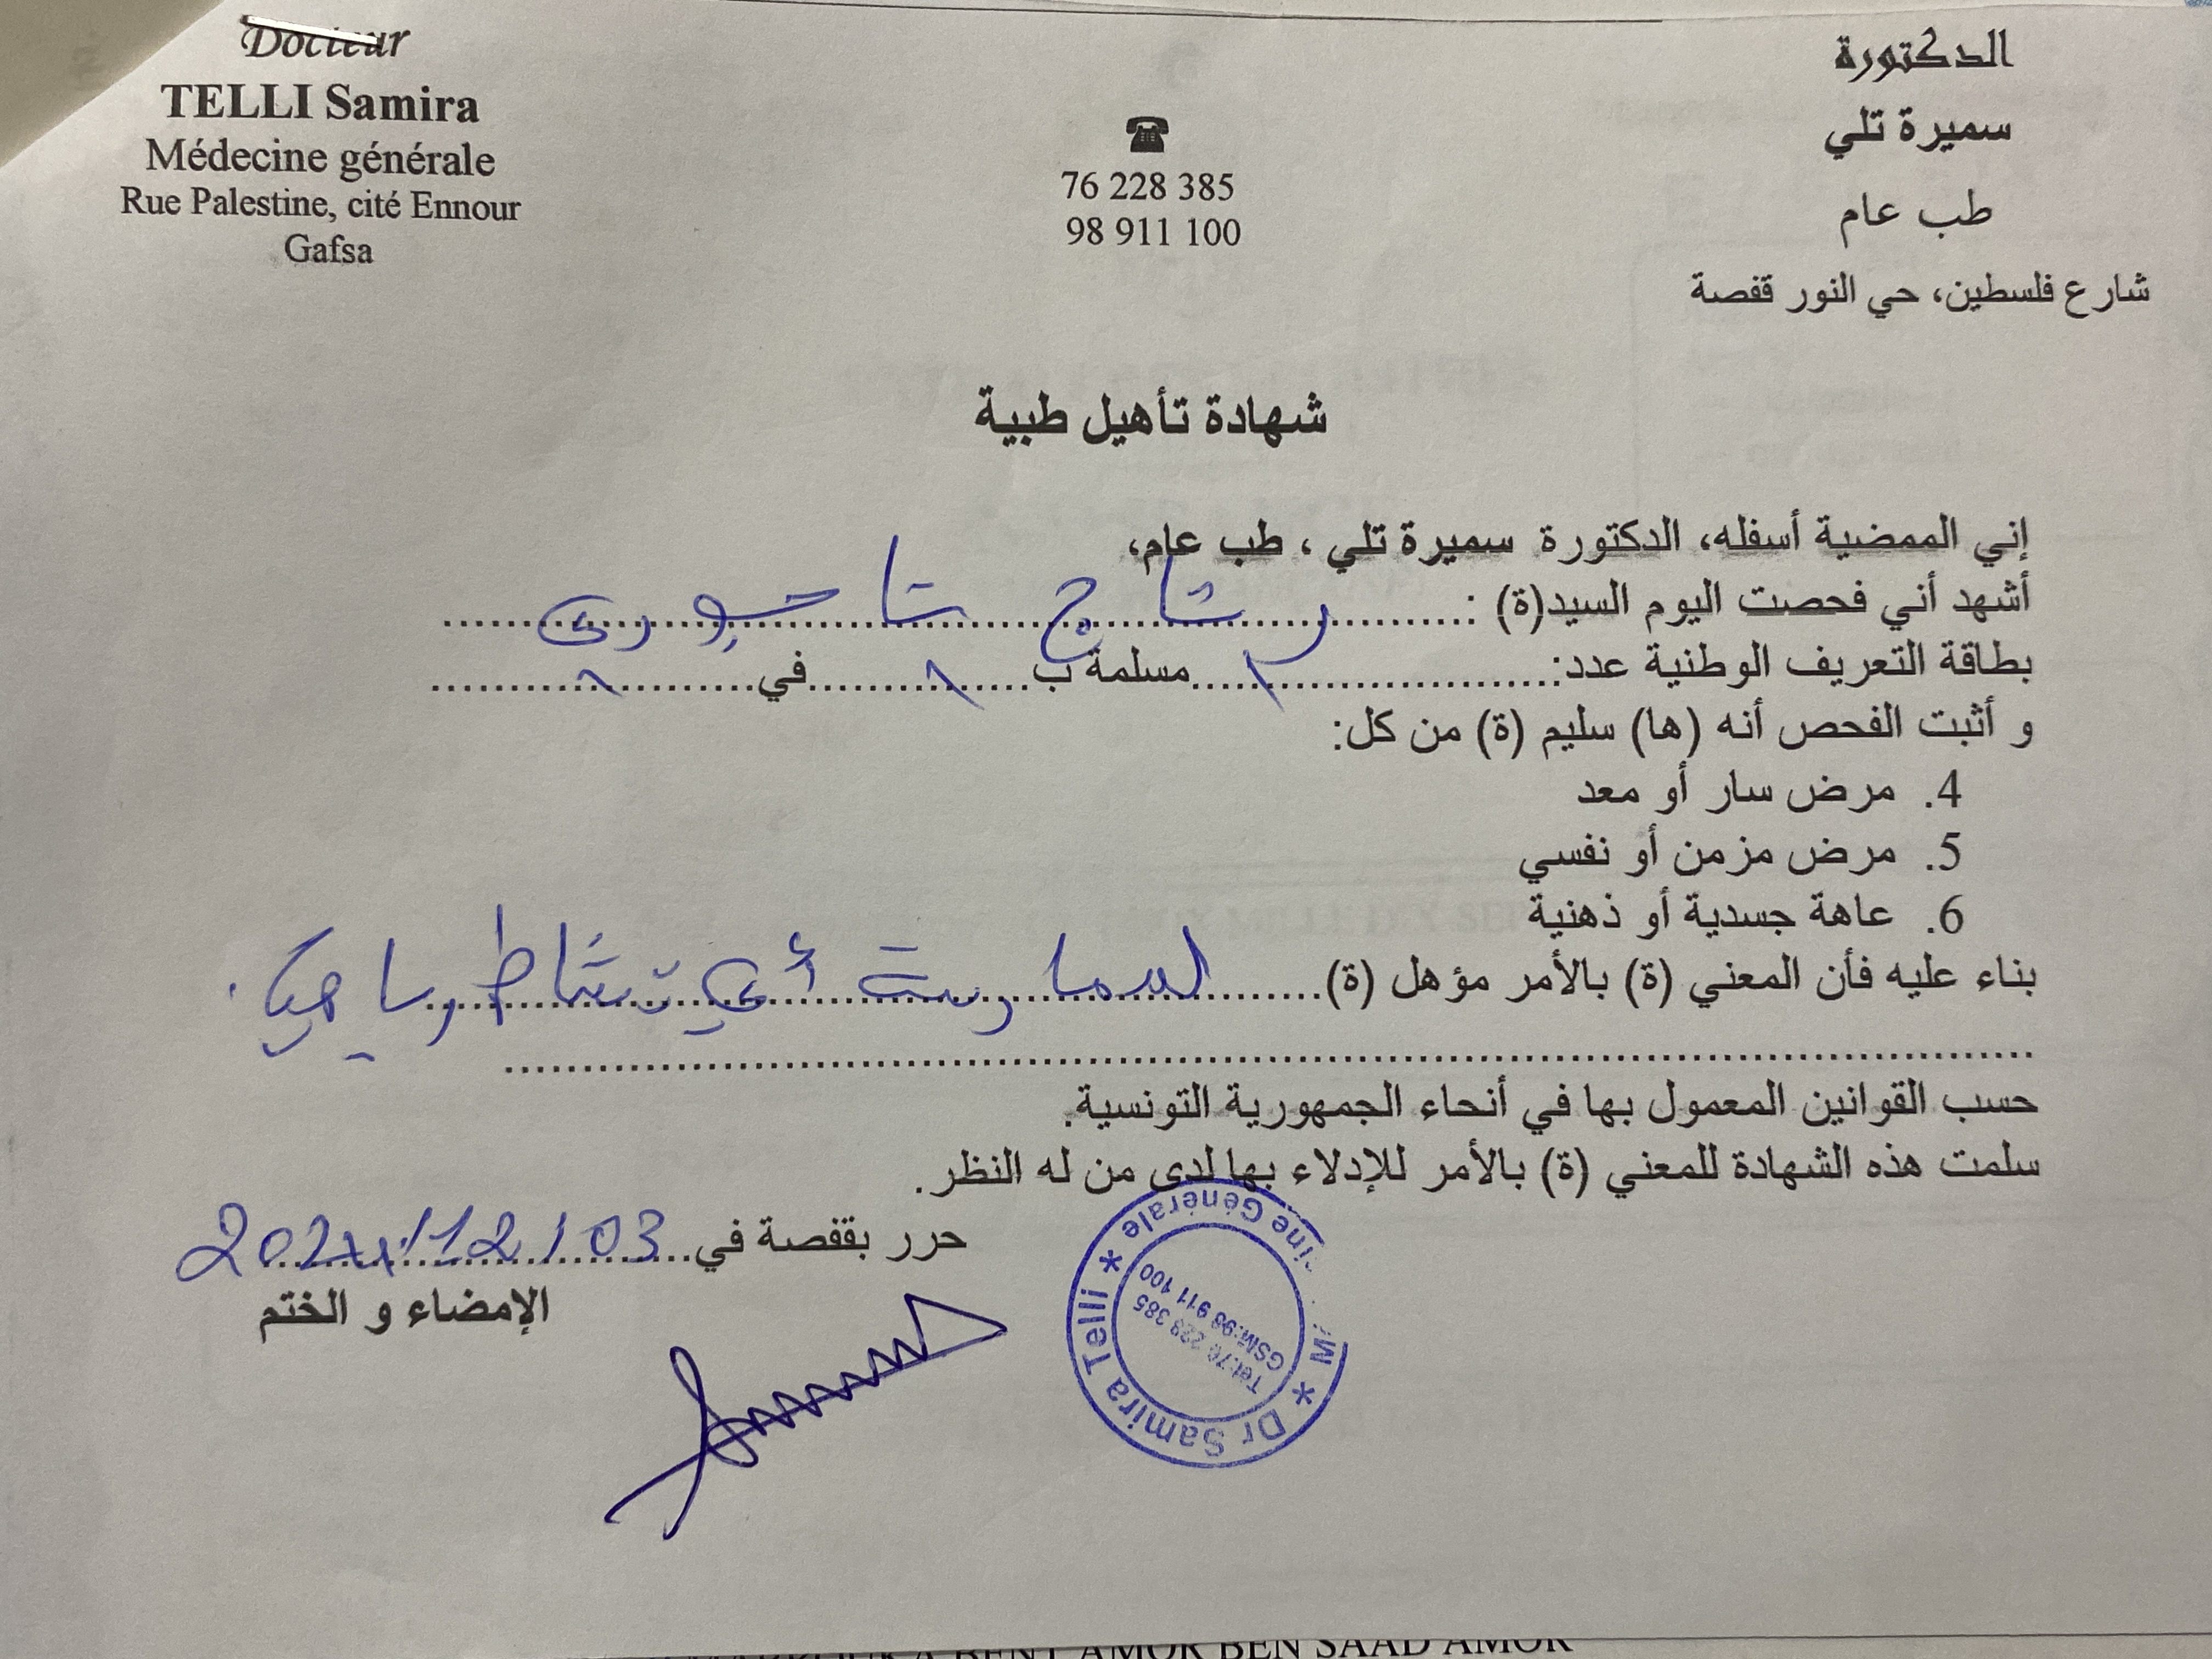 Docteur
TELLI Samira
Médecine générale
Rue Palestine, cité Ennour
Gafsa
76 228 385
98 911 100
الدكتورة
سميرة تلي
طب عام
شارع فلسطين، حي النور قفصة
شهادة تأهيل طبية
إني الممضية أسفله، الدكتورة سميرة تلي ، طب عام،
أشهد أني فحصت اليوم السيد(ة) :
بطاقة التعريف الوطنية عدد: \ مسلمة ب \ في \
و أثبت الفحص أنه (ها) سليم (ة) من كل:
4. مرض سار أو معد
5. مرض مزمن أو نفسي
6. عاهة جسدية أو ذهنية
بناء عليه فأن المعني (ة) بالأمر مؤهل (ة) لممارسة أي نشاط رياضي.
حسب القوانين المعمول بها في أنحاء الجمهورية التونسية.
سلمت هذه الشهادة للمعني (ة) بالأمر للإدلاء بها لدى من له النظر.
حرر بقفصة في 03 / 12 /
الإمضاء و الختم
Dr Samira Telli * Générale *
Tél:76 228 385
GSM:98 911 100
BENT AMOR BEN SAAD AMOR